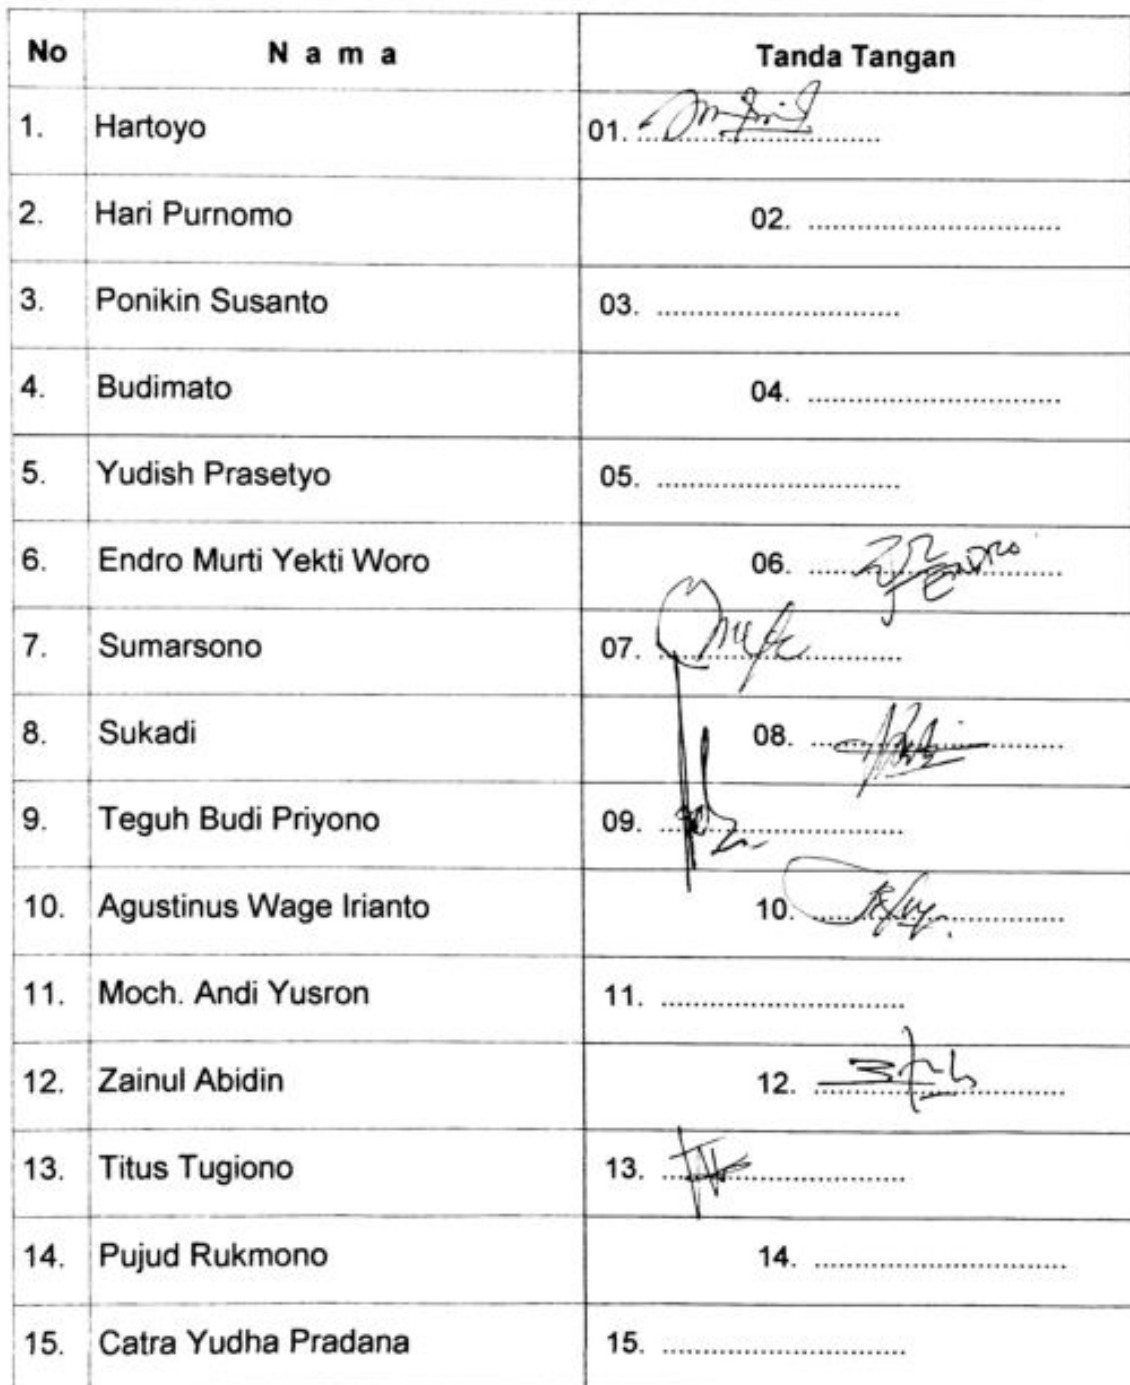 No N a m a Tanda Tangan
1. Hartoyo 01. ..............................
2. Hari Purnomo 02. ..............................
3. Ponikin Susanto 03. ..............................
4. Budimato 04. ..............................
5. Yudish Prasetyo 05. ..............................
6. Endro Murti Yekti Woro 06. .............................. ENDRO
7. Sumarsono 07. ..............................
8. Sukadi 08. ..............................
9. Teguh Budi Priyono 09. ..............................
10. Agustinus Wage Irianto 10. ..............................
11. Moch. Andi Yusron 11. ..............................
12. Zainul Abidin 12. ..............................
13. Titus Tugiono 13. ..............................
14. Pujud Rukmono 14. ..............................
15. Catra Yudha Pradana 15. ..............................